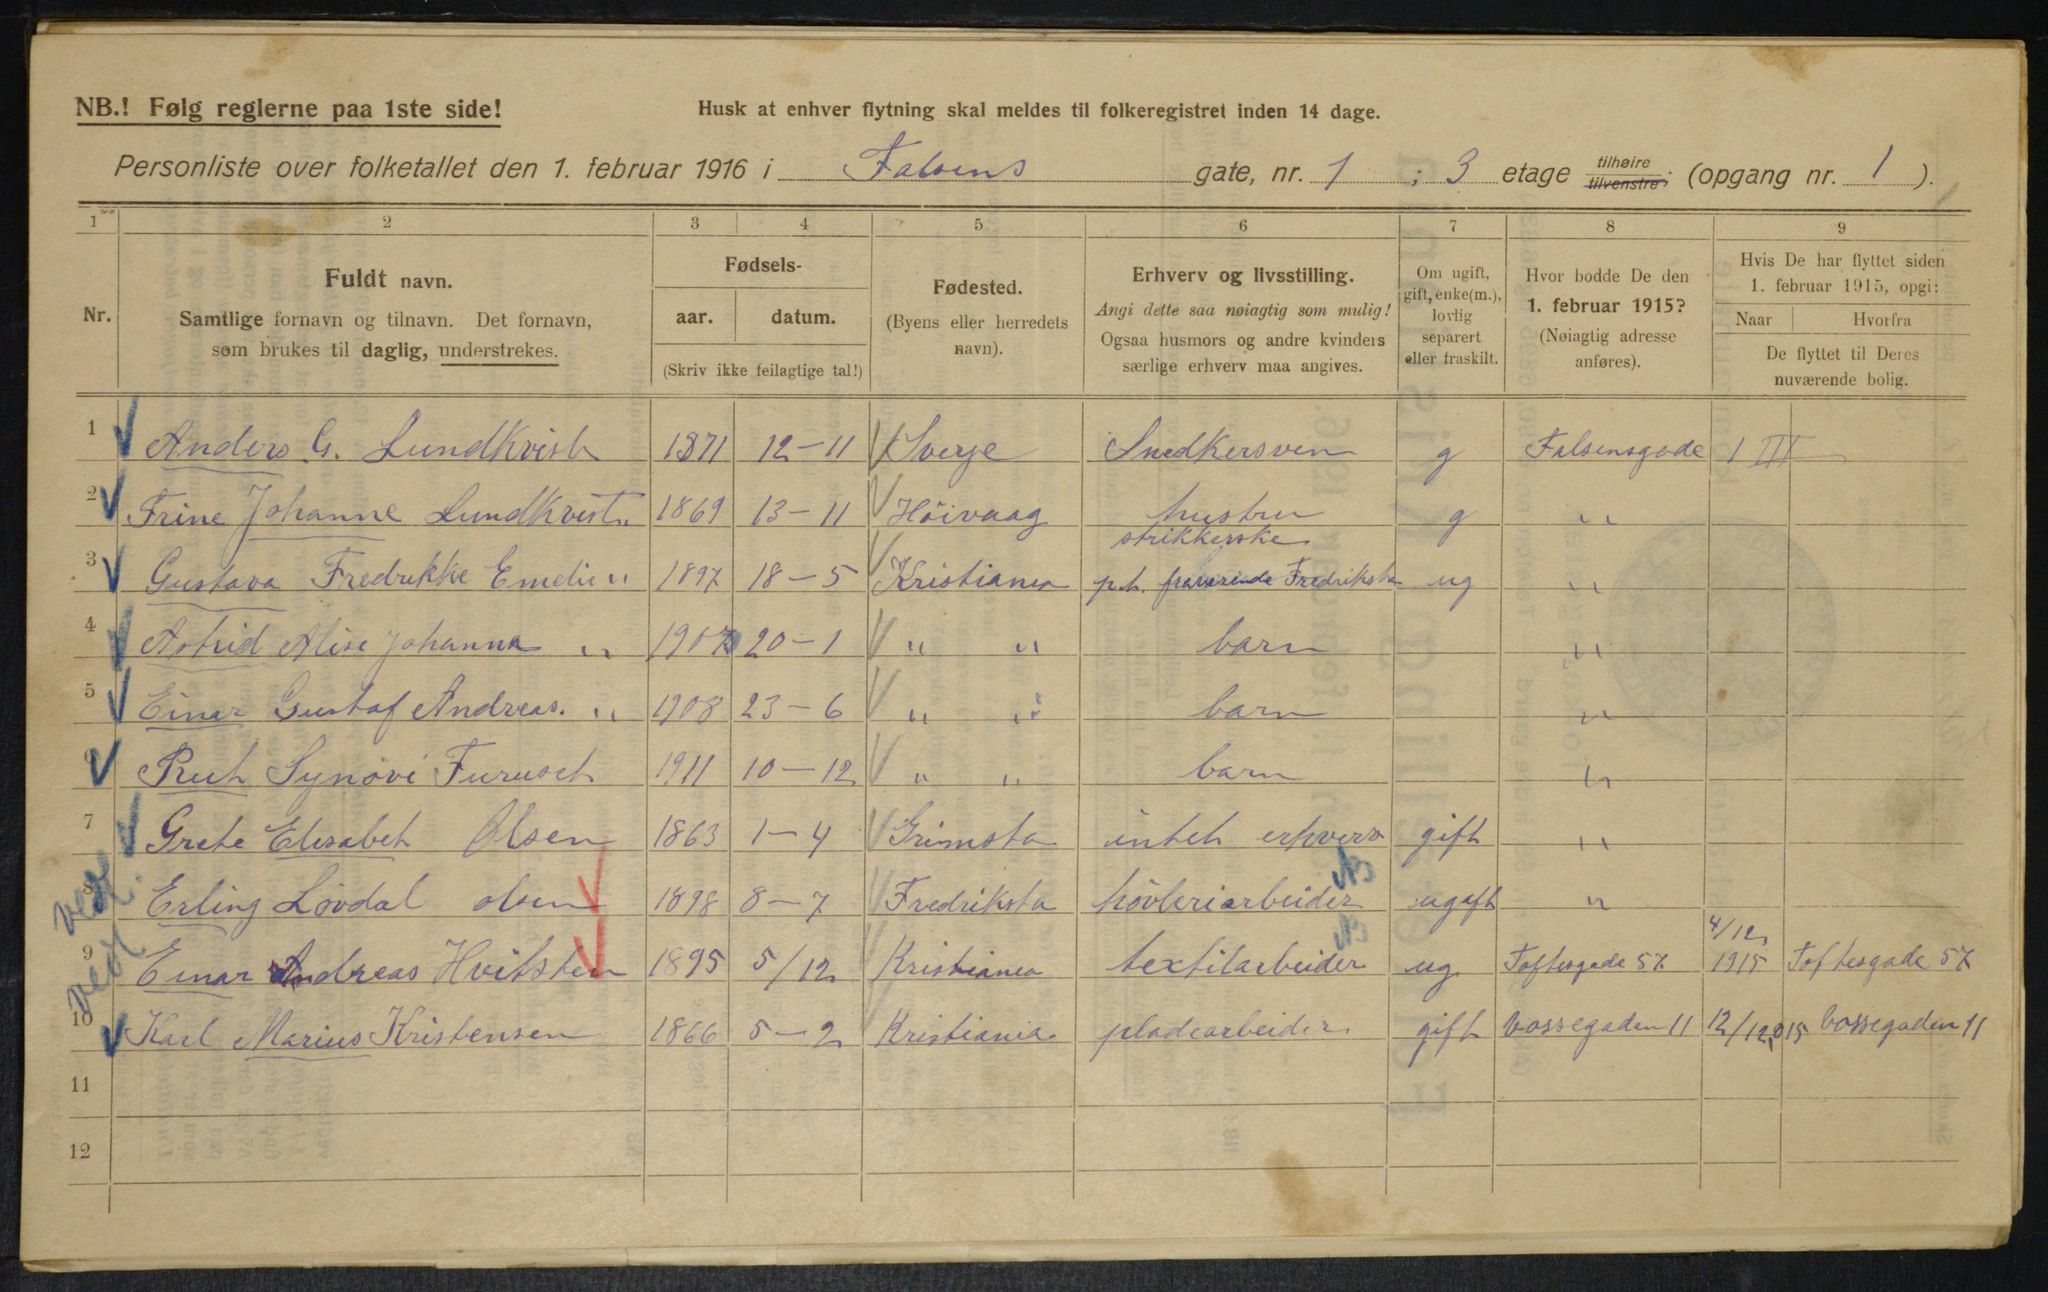 NB.! Følg reglerne paa 1ste side!
Husk at enhver flytning skal meldes til folkeregistret inden 14 dage.
Personliste over folketallet den 1. februar 1916 i Falsens gate, nr. 1 ; 3 etage tilhøire tilvenstre; (opgang nr. 1 ).
1 2 3 4 5 6 7 8 9
Nr.
Fuldt navn.
Samtlige fornavn og tilnavn. Det fornavn,
som brukes til daglig, understrekes.
Fødsels-
aar. datum.
(Skriv ikke feilagtige tal!)
Fødested.
(Byens eller herredets
navn).
Erhverv og livsstilling.
Angi dette saa nøiagtig som mulig!
Ogsaa husmors og andre kvinders
særlige erhverv maa angives.
Om ugift,
gift, enke(m.),
lovlig
separert
eller fraskilt.
Hvor bodde De den
1. februar 1915?
(Nøiagtig adresse
anføres).
Hvis De har flyttet siden
1. februar 1915, opgi:
Naar Hvorfra
De flyttet til Deres
nuværende bolig.
1 Anders G. Lundkvist 1871 12-11 Sverje Snedkersven g Falsensgade 1 III
2 Trine Johanne Lundkvist 1869 13-11 Höivaag hustru g "
strikkerske
3 Gustava Fredrikke Emelie " 1897 18-5 Kristiania p.t. fraverende Fredriksta ug "
4 Astrid Alise Johanna " 1907 20-1 " " barn "
5 Einar Gustaf Andreas. " 1908 23-6 " " barn "
6 Rut Synövi Furuset 1911 10-12 " " barn "
7 Grete Elisabet Olsen 1863 1-4 Grimsta intet erhverv gift "
8 Erling Lövdal olsen 1898 8-7 Fredriksta hövleriarbeider ugift "
9 Einar Andreas Hvitsten 1895 5/12 Kristiania textilarbeider ug Toftesgade 57 4/12 1915 Toftesgade 57
10 Karl Marius Kristensen 1866 5-2 Kristiania pladearbeider gift Vossegaden 11 12/12 15 Vossegaden 11
11
12